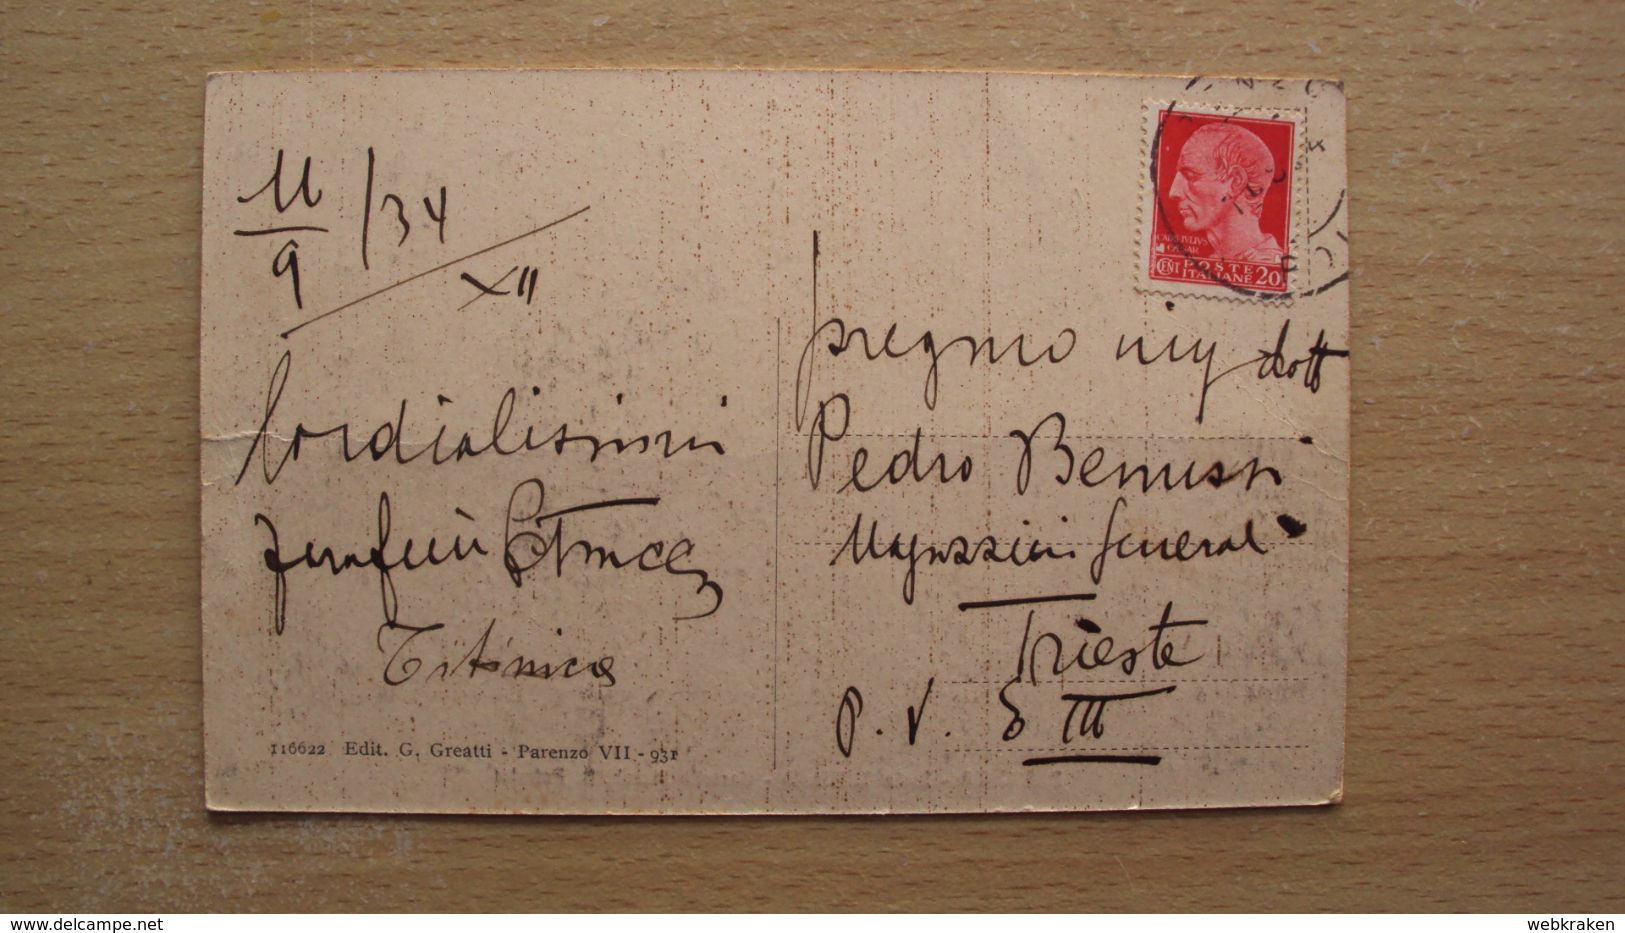 11/9/34
XII
Cordialissimi
116622 Edit. G. Greatti - Parenzo VII - 931
CAIVS·IVLIVS
CAESAR
CENT POSTE ITALIANE 20
pregmo sig dott
Pedro Benussi
Magazzini Generali
Trieste
P. V. E III
delcampe.net
webkraken